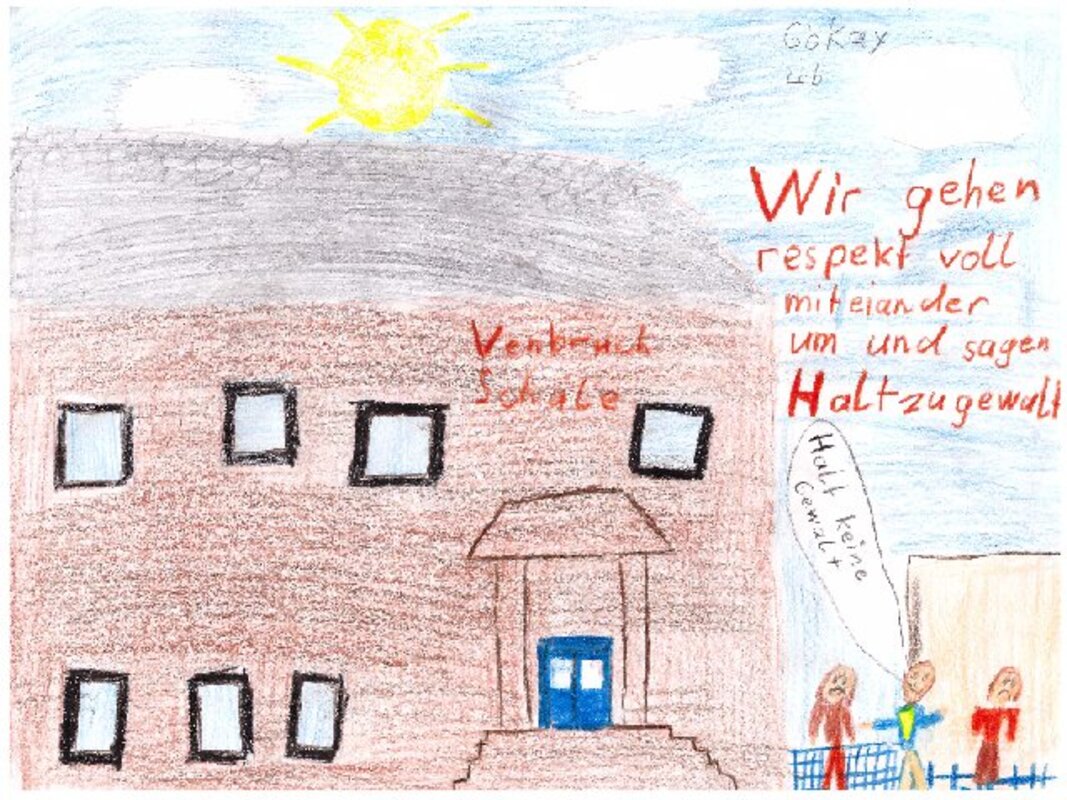 Gokay
4b
Wir gehen
respekt voll
miteiander
um und sagen
Halt zu gewalt
Venbruch
Schule
Halt keine
Gewalt